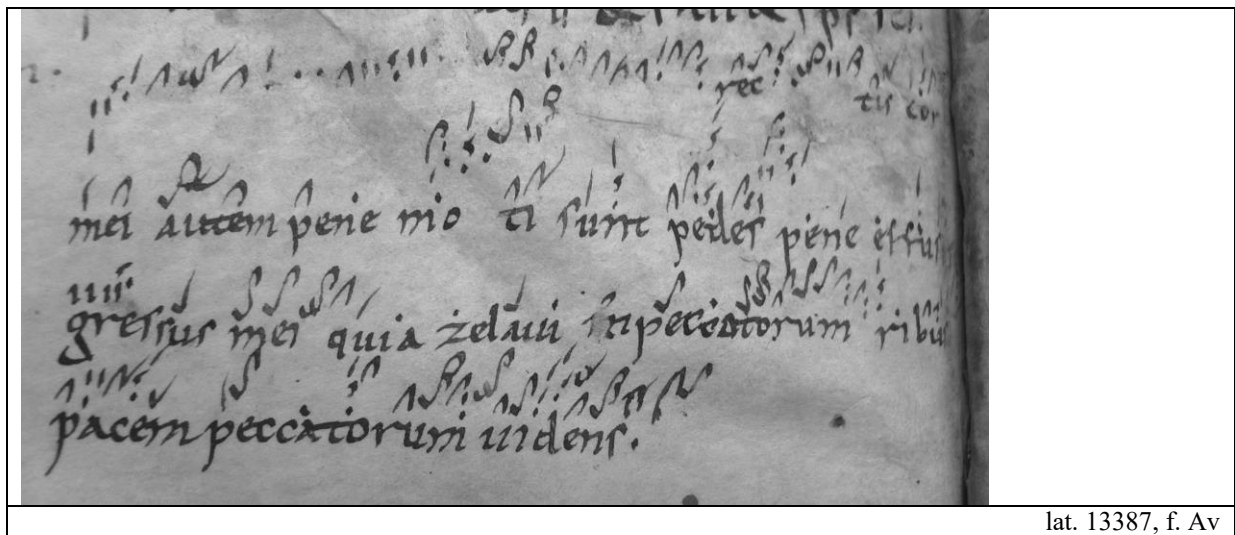 rec tis cor
mei autem pene mo ti sunt pedes pene effus
gressus mei quia zelaui in peccatorum ribus
pacem peccatorum uidens.
lat. 13387, f. Av